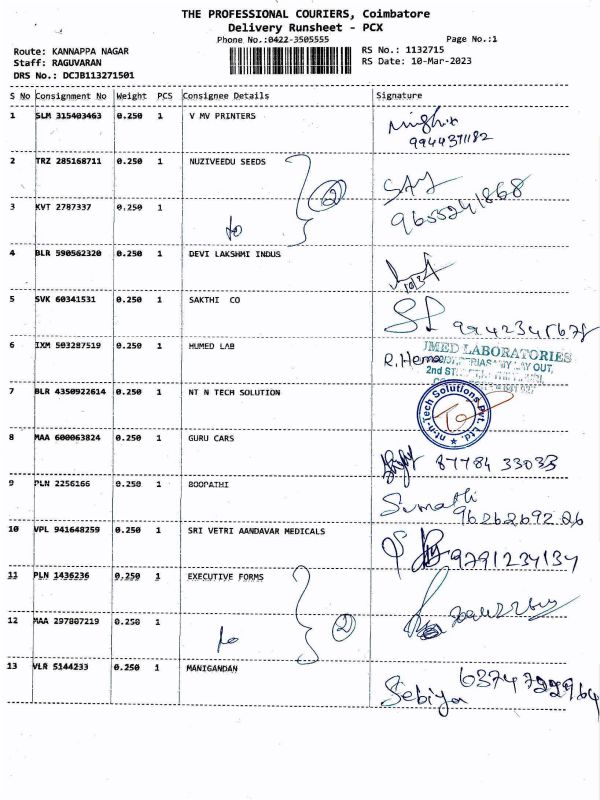 THE PROFESSIONAL COURIERS, Coimbatore
Delivery Runsheet - PCX
Phone No.:0422-3505555
Page No.:1
Route: KANNAPPA NAGAR
RS No.: 1132715
Staff: RAGUVARAN
RS Date: 10-Mar-2023
DRS No.: DCJB113271501
S No Consignment No Weight PCS Consignee Details Signature
1 SLM 315403463 0.250 1 V MV PRINTERS
9944371182
2 TRZ 285168711 0.250 1 NUZIVEEDU SEEDS
3 KVT 2787337 0.250 1 to 2 9655241868
4 BLR 590562320 0.250 1 DEVI LAKSHMI INDUS
5 SVK 60341531 0.250 1 SAKTHI CO
6 IXM 503287519 0.250 1 HUMED LAB R.Hema
UMED LABORATORIES
LAY OUT,
2nd
7 BLR 4350922614 0.250 1 NT N TECH SOLUTION
nt-n-Tech Solutions Pvt. Ltd.
8 MAA 600063824 0.250 1 GURU CARS 87784 33033
9 PLN 2256166 0.250 1 BOOPATHI Sumathi
10 VPL 941648259 0.250 1 SRI VETRI AANDAVAR MEDICALS 9791234134
11 PLN 1436236 0.250 1 EXECUTIVE FORMS
12 MAA 297807219 0.250 1 to 2
13 VLR 5144233 0.250 1 MANIGANDAN
Sebiya